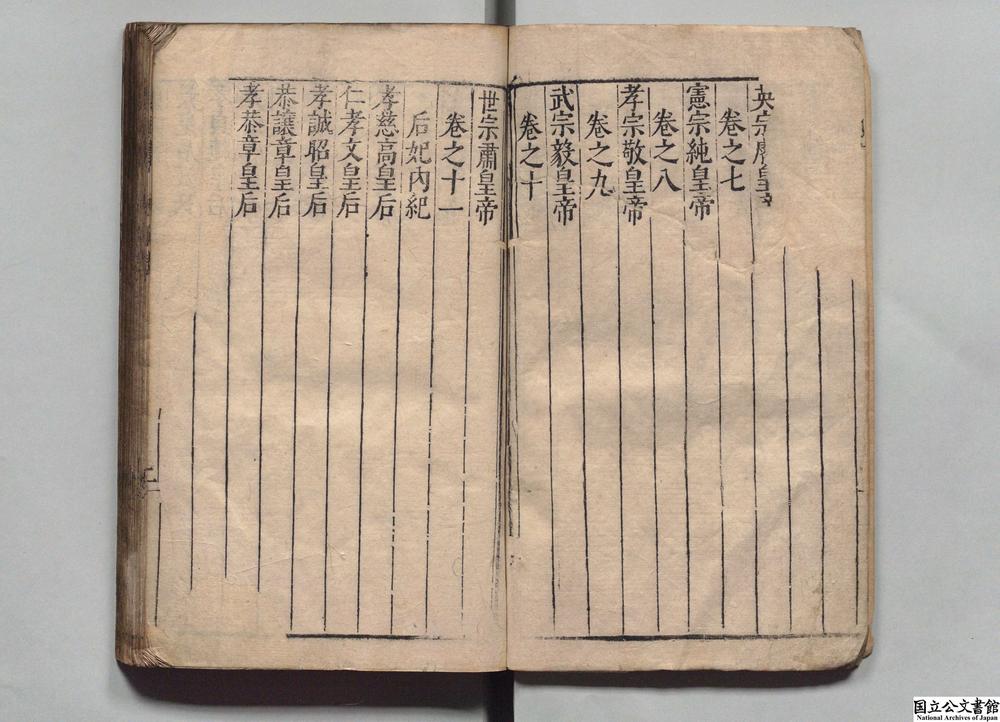 英宗睿皇帝
卷之七
憲宗純皇帝
卷之八
孝宗敬皇帝
卷之九
武宗毅皇帝
卷之十
世宗肅皇帝
卷之十一
后妃內紀
孝慈高皇后
仁孝文皇后
孝誠昭皇后
恭讓章皇后
孝恭章皇后
国立公文書館
National Archives of Japan